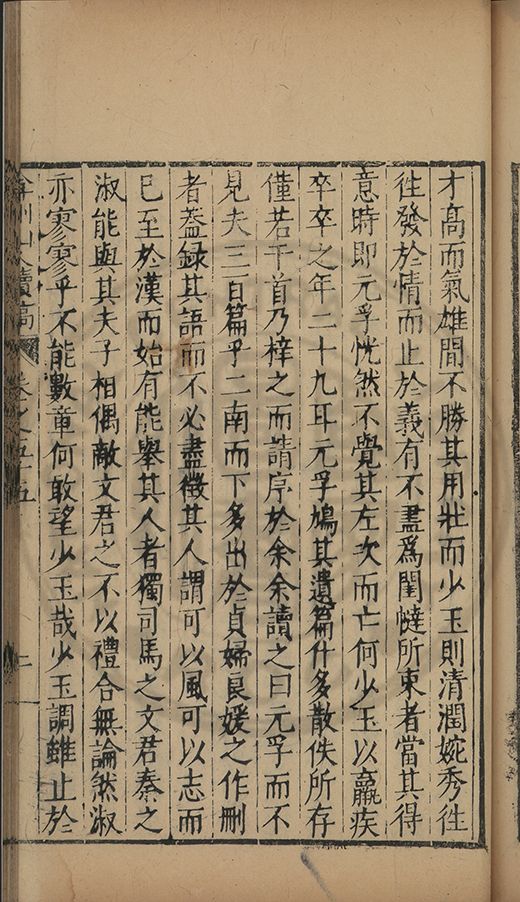 才高而氣雄間不勝其用壯而少玉則清潤婉秀徃
徃發於情而止於義有不盡爲閨闥所束者當其得
意時即元孚恍然不覺其左次而亡何少玉以羸疾
卒卒之年二十九耳元孚鳩其遺篇什多散佚所存
僅若干首乃梓之而請序於余余讀之曰元孚而不
見夫三百篇乎二南而下多出於貞婦良媛之作刪
者葢録其語而不必盡徵其人謂可以風可以志而
已至於漢而始有能舉其人者獨司馬之文君秦之
淑能與其夫子相偶敵文君之不以禮合無論然淑
亦寥寥乎不能數章何敢望少玉哉少玉調雖止於
弇州山人續稿 卷之五十五 二